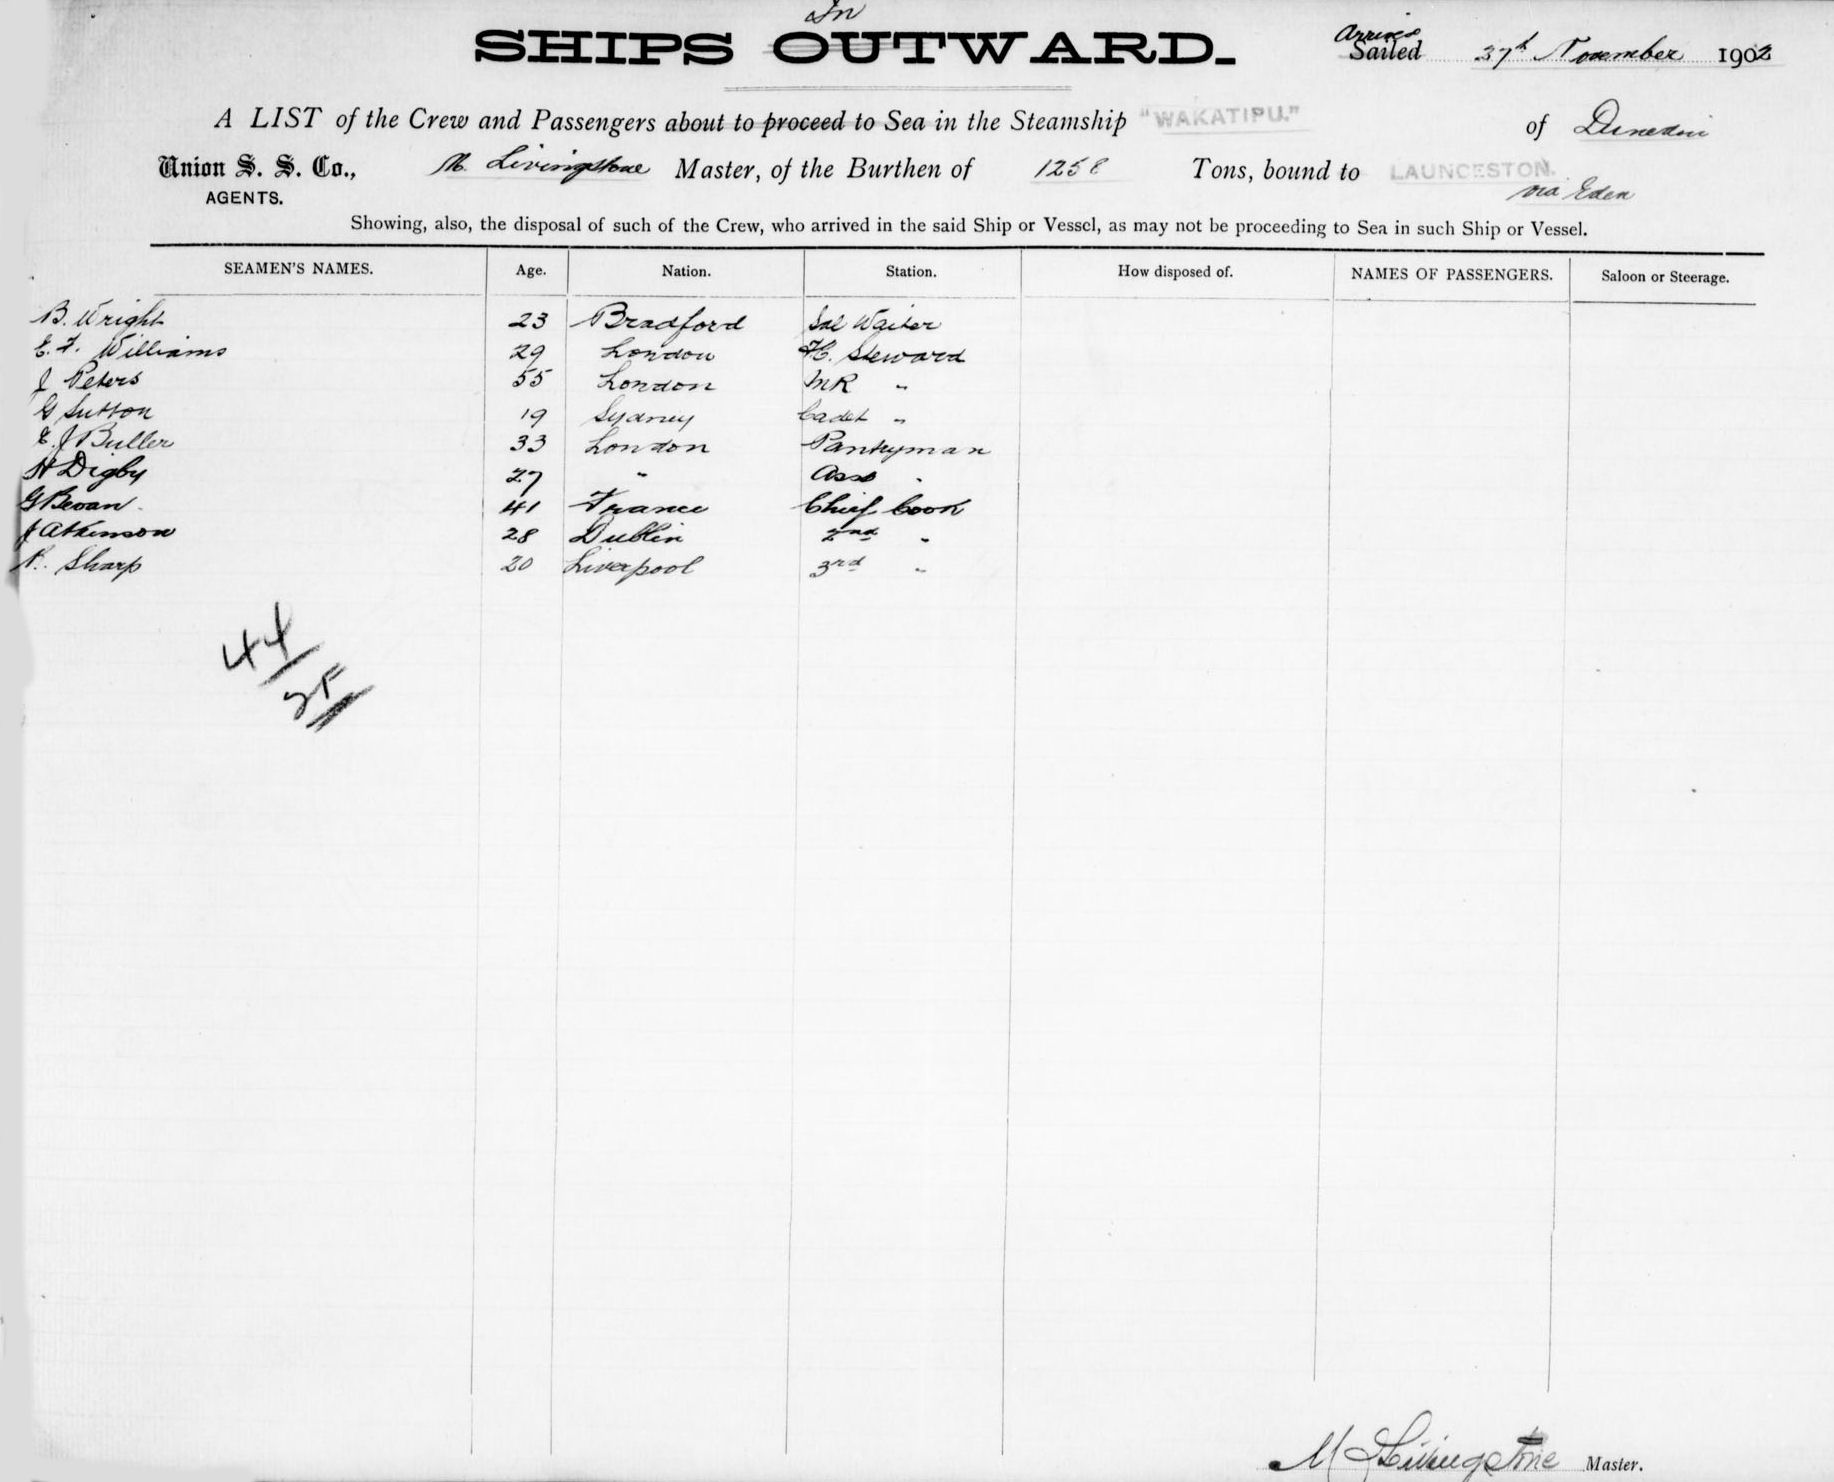 In
SHIPS OUTWARD.
Arrived
Sailed 27th November 1902
A LIST of the Crew and Passengers about to proceed to Sea in the Steamship "WAKATIPU." of Dunedin
Union S. S. Co., M. Livingstone Master, of the Burthen of 1258 Tons, bound to LAUNCESTON.
AGENTS. via Eden
Showing, also, the disposal of such of the Crew, who arrived in the said Ship or Vessel, as may not be proceeding to Sea in such Ship or Vessel.
SEAMEN'S NAMES. Age. Nation. Station. How disposed of. NAMES OF PASSENGERS. Saloon or Steerage.
B. Wright 23 Bradford Sal Waiter
E. F. Williams 29 London F.C. Steward
J Peters 55 London MR "
G Sutton 19 Sydney Cadet "
E. J Buller 33 London Pantryman
H Digby 27 " Ass "
G Bevan 41 France Chief Cook
J Atkinson 28 Dublin 2nd "
Sharp 20 Liverpool 3rd "
44
M Livingstone Master.